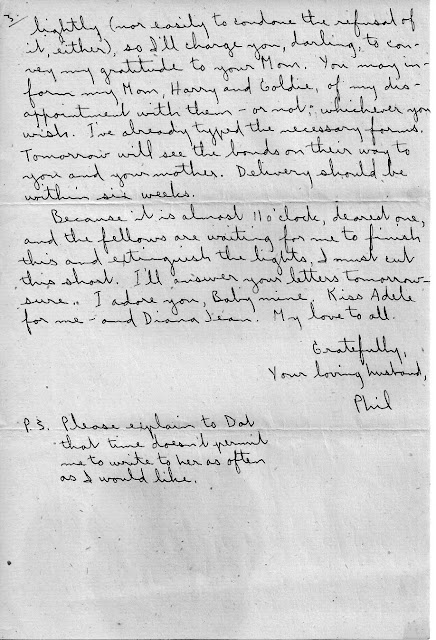 3/
lightly (nor easily to condone the refusal of
it, either), so I'll charge you, darling, to con-
vey my gratitude to your Mom. You may in-
form my Mom, Harry and Goldie, of my dis-
appointment with them - or not; whichever you
wish. I've already typed the necessary forms.
Tomorrow will see the bonds on their way to
you and your mother. Delivery should be
within six weeks.
Because it is almost 11 o'clock, dearest one,
and the fellows are waiting for me to finish
this and extinguish the lights, I must cut
this short. I'll answer your letters tomorrow -
sure.. I adore you, Baby mine. Kiss Adele
for me - and Diana Jean. My love to all.
Gratefully,
Your loving husband,
Phil
P.S. Please explain to Dot
that time doesn't permit
me to write to her as often
as I would like.